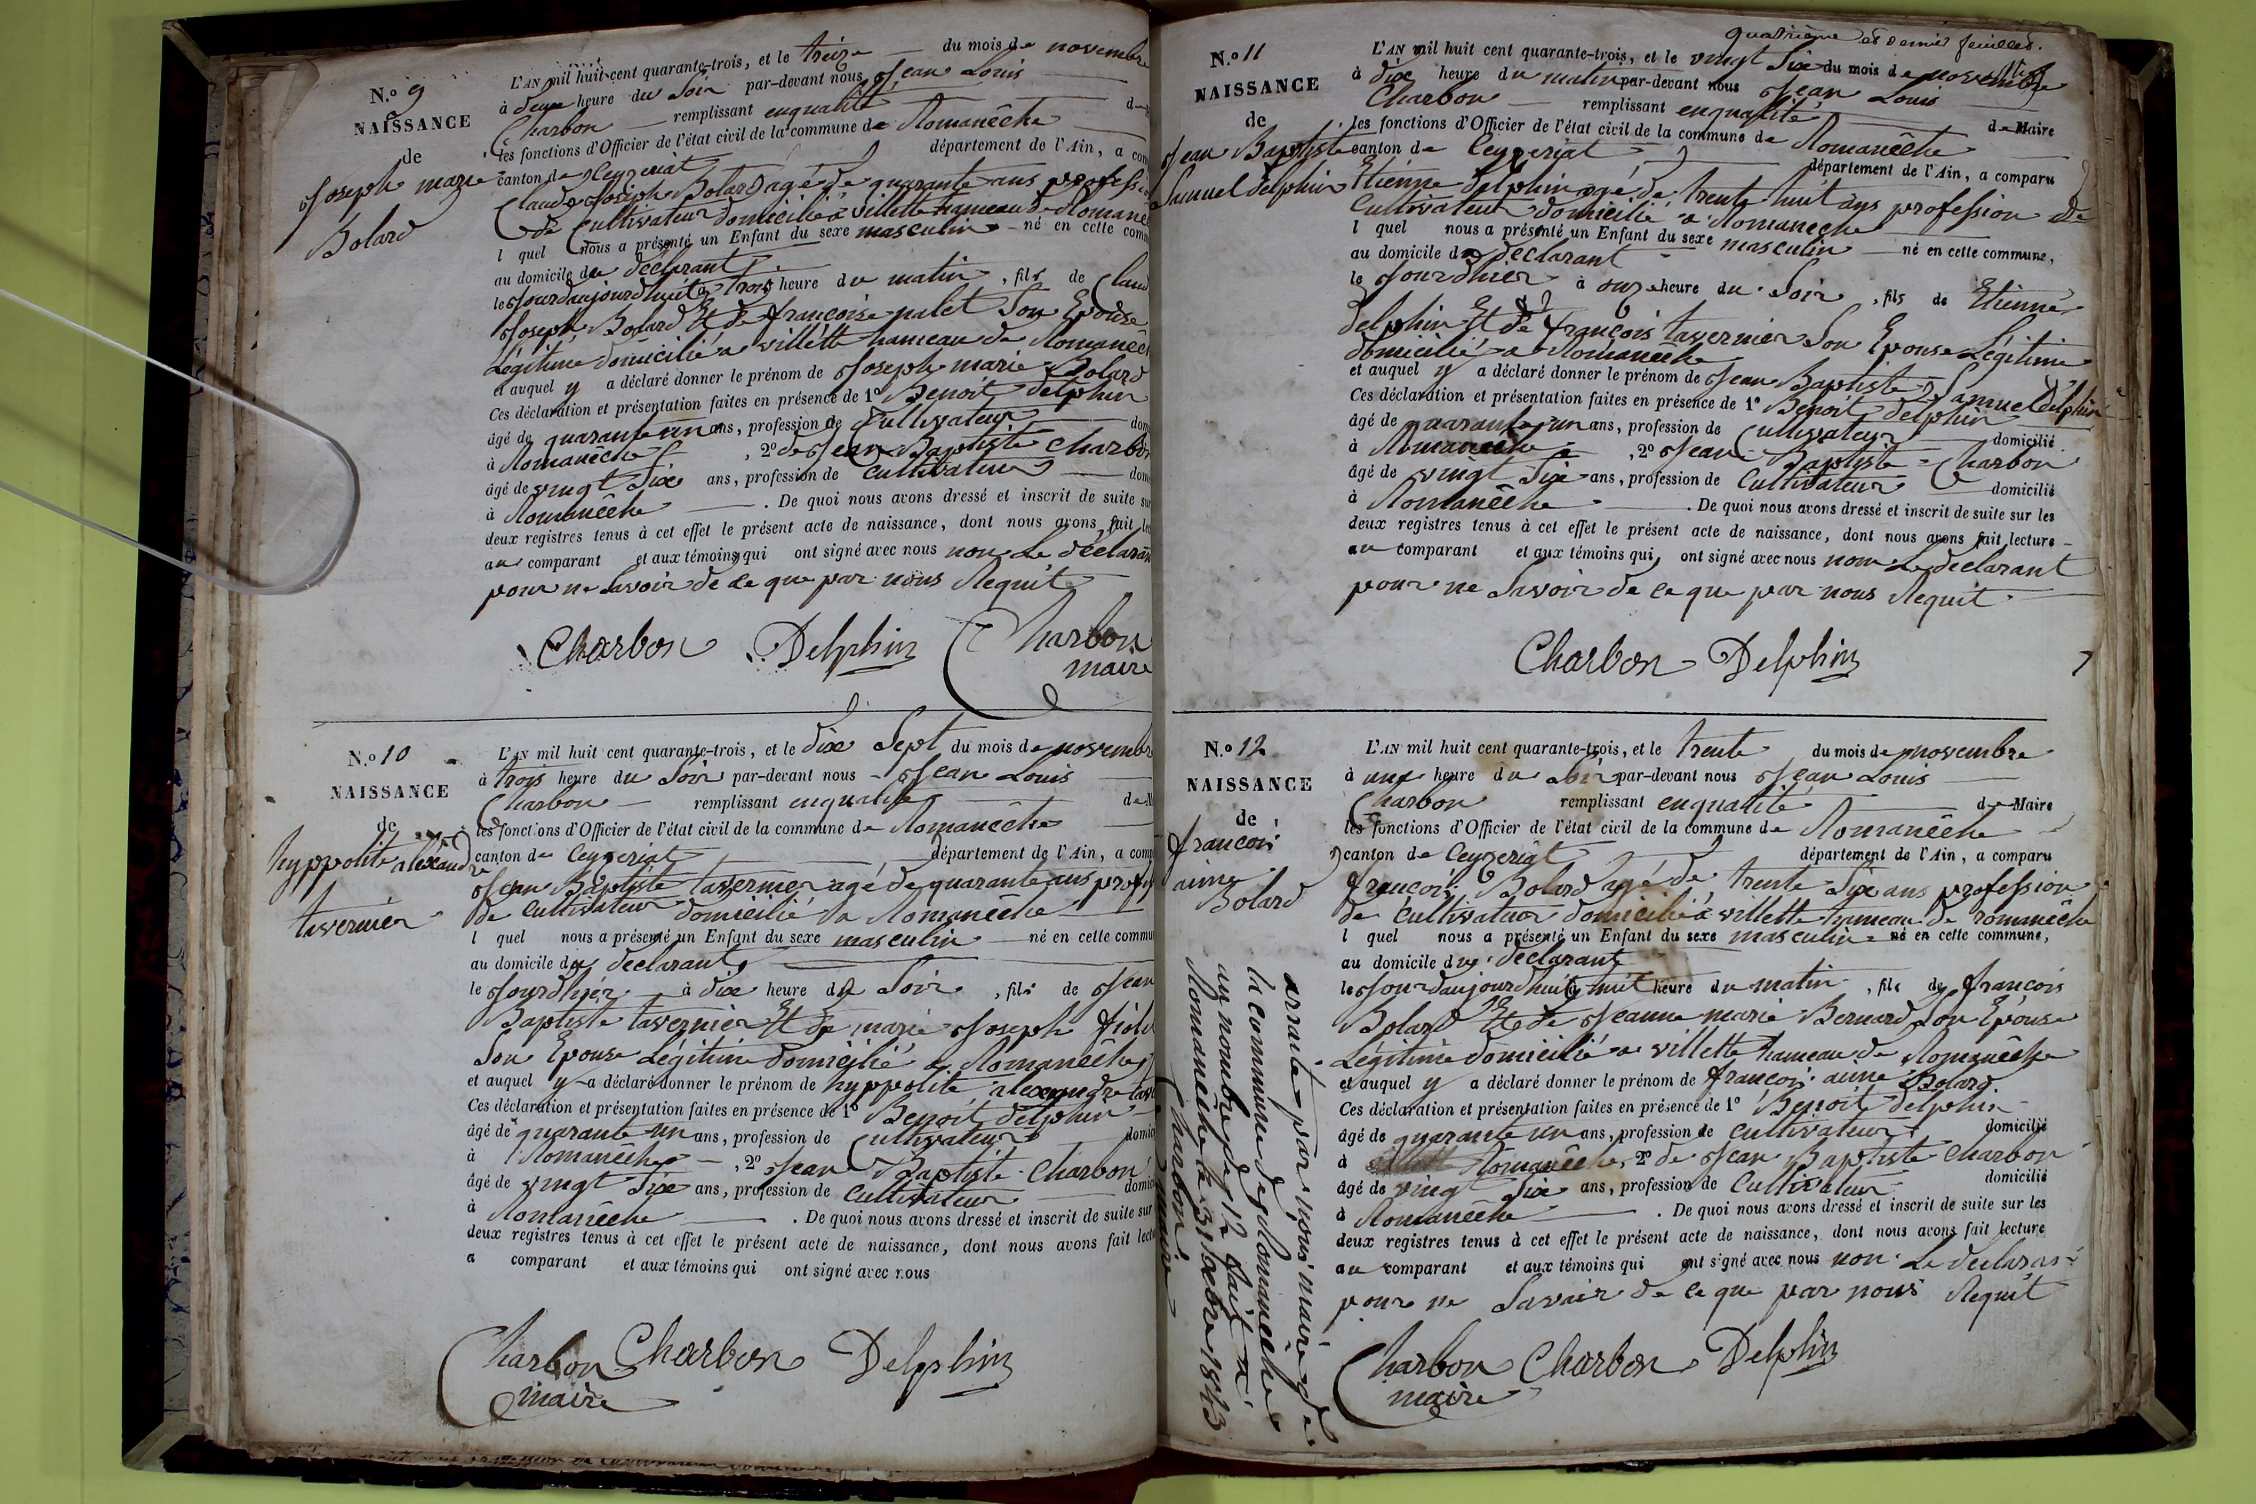 N.o 9
NAISSANCE
de
Joseph marie
Bolard
L'AN mil huit cent quarante-trois, et le treize du mois de novembre
à deux heure du Soir par-devant nous Jean Louis
Charbon remplissant enqualité de
les fonctions d'Officier de l'état civil de la commune de Romanêche
canton de Ceyzeriat département de l'Ain, a com
Claude Joseph Bolard agé de quarante ans profession
de Cultivateur domicilié a villette hameau de Romanê
l quel nous a présenté un Enfant du sexe masculin né en cette comm
au domicile du déclarant
le Jourdaujourdhuit à trois heure du matin, fils de Claud
Joseph Bolard Et de françoise palet Son Epouse
Légitime domicilié a villette hameau de Romanêch
et auquel y a déclaré donner le prénom de Joseph marie Bolard
Ces déclaration et présentation faites en présence de 1o Benoit delphin
âgé de quarante un ans, profession de Cultivateur dom
à Romanêche, 2o de Jean Baptiste Charbon
âgé de vingt Six ans, profession de Cultivateur dom
à Romanêche. De quoi nous avons dressé et inscrit de suite sur
deux registres tenus à cet effet le présent acte de naissance, dont nous avons fait lec
au comparant et aux témoins qui ont signé avec nous non Le déclarant
pour ne Savoir de ce que par nous Requit
Charbon Delphin Charbon
maire
N.o 10
NAISSANCE
de
hyppolite alexandre
tavernier
L'AN mil huit cent quarante-trois, et le dix Sept du mois de novembre
à trois heure du Soir par-devant nous Jean Louis
Charbon remplissant enqualité de M
les fonctions d'Officier de l'état civil de la commune de Romanêche
canton de Ceyzeriat département de l'Ain, a comp
Jean Baptiste tavernier agé de quarante ans profess
de Cultivateur domicilié a Romanêche
l quel nous a présenté un Enfant du sexe masculin né en cette commu
au domicile du déclarant
le Jourdhier à dix heure du Soir, fils de Jean
Baptiste tavernier Et de marie Joseph
Son Epouse Légitime domicilié a Romanêche
et auquel y a déclaré donner le prénom de hyppolite alexandre tave
Ces déclaration et présentation faites en présence de 1o Benoit delphin
âgé de quarante un ans, profession de Cultivateur domic
à Romanêche, 2o Jean Baptiste Charbon
âgé de vingt Six ans, profession de Cultivateur domic
à Romanêche. De quoi nous avons dressé et inscrit de suite sur
deux registres tenus à cet effet le présent acte de naissance, dont nous avons fait lectu
a comparant et aux témoins qui ont signé avec nous
Charbon Charbon Delphin
maire
quatrième et dernier feuillet.
N.o 11
NAISSANCE
de
Jean Baptiste
Samuel delphin
L'AN mil huit cent quarante-trois, et le vingt Six du mois de novembre
à dix heure du matin par-devant nous Jean Louis
Charbon remplissant enqualité de Maire
les fonctions d'Officier de l'état civil de la commune de Romanêche
canton de Ceyzeriat département de l'Ain, a comparu
Etienne delphin agé de trente huit ans profession de
Cultivateur domicilié a Romanêche
l quel nous a présenté un Enfant du sexe masculin né en cette commune,
au domicile du déclarant
le Jourdhier à onze heure du Soir, fils de Etienne
delphin Et de françois tavernier Son Epouse Légitime
domicilié a Romanêche
et auquel y a déclaré donner le prénom de Jean Baptiste Samuel delphin
Ces déclaration et présentation faites en présence de 1o Benoit delphin
âgé de quarante un ans, profession de Cultivateur domicilié
à Romanêche, 2o Jean Baptiste Charbon
âgé de vingt Six ans, profession de Cultivateur domicilié
à Romanêche. De quoi nous avons dressé et inscrit de suite sur les
deux registres tenus à cet effet le présent acte de naissance, dont nous avons fait lecture
au comparant et aux témoins qui ont signé avec nous non Le déclarant
pour ne Savoir de ce que par nous Requit
Charbon Delphin
N.o 12
NAISSANCE
de
françois
aimé
Bolard
L'AN mil huit cent quarante-trois, et le trente du mois de novembre
à une heure du Soir par-devant nous Jean Louis
Charbon remplissant enqualité de Maire
les fonctions d'Officier de l'état civil de la commune de Romanêche
canton de Ceyzeriat département de l'Ain, a comparu
françois Bolard agé de trente Six ans profession
de Cultivateur domicilié a villette hameau de romanêche
l quel nous a présenté un Enfant du sexe masculin né en cette commune,
au domicile du déclarant
le Jourdaujourdhuit à huit heure du matin, fils de françois
Bolard Et de Jeanne marie Bernard Son Epouse
Légitime domicilié a villette hameau de Romanêche
et auquel y a déclaré donner le prénom de françois aimé Bolard
Ces déclaration et présentation faites en présence de 1o Benoit delphin
âgé de quarante un ans, profession de Cultivateur domicilié
à Romanêche, 2o de Jean Baptiste Charbon
âgé de vingt Six ans, profession de Cultivateur domicilié
à Romanêche. De quoi nous avons dressé et inscrit de suite sur les
deux registres tenus à cet effet le présent acte de naissance, dont nous avons fait lecture
au comparant et aux témoins qui ont signé avec nous non Le déclaran
pour ne Savoir de ce que par nous Requit
Charbon Charbon Delphin
maire
arraité par nous maire de
la commune de Romanêche
au nombre de 12 fait a
Romanêche le 31 xbre 1843
Charbon maire